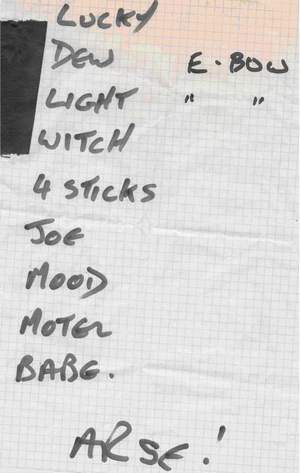 LUCKY
DEW E-BOW
LIGHT " "
WITCH
4 STICKS
JOE
MOOD
MOTEL
BABE.
ARSE!